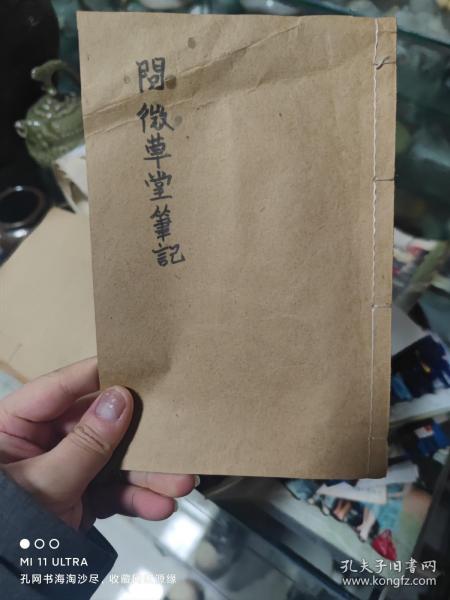 閱微草堂筆記
MI 11 ULTRA
孔网书海淘沙尽，收藏
源缘
孔夫子旧书网
www.kongfz.com